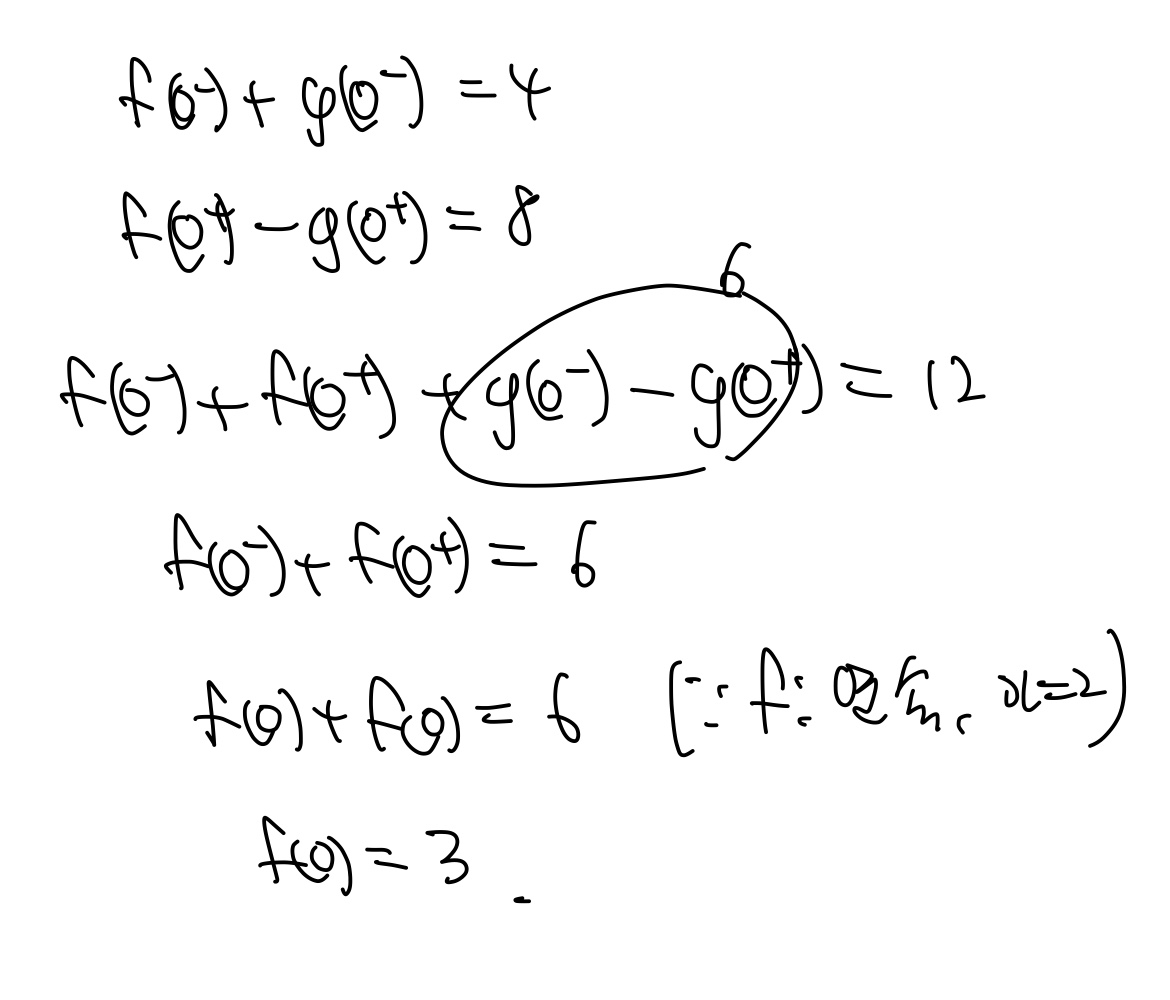 f(0⁻) + g(0⁻) = 4
f(0⁺) − g(0⁺) = 8
6
f(0⁻) + f(0⁺) + g(0⁻) − g(0⁺) = 12
f(0⁻) + f(0⁺) = 6
f(0) + f(0) = 6 (∵ f: 연속, x=2)
f(0) = 3.